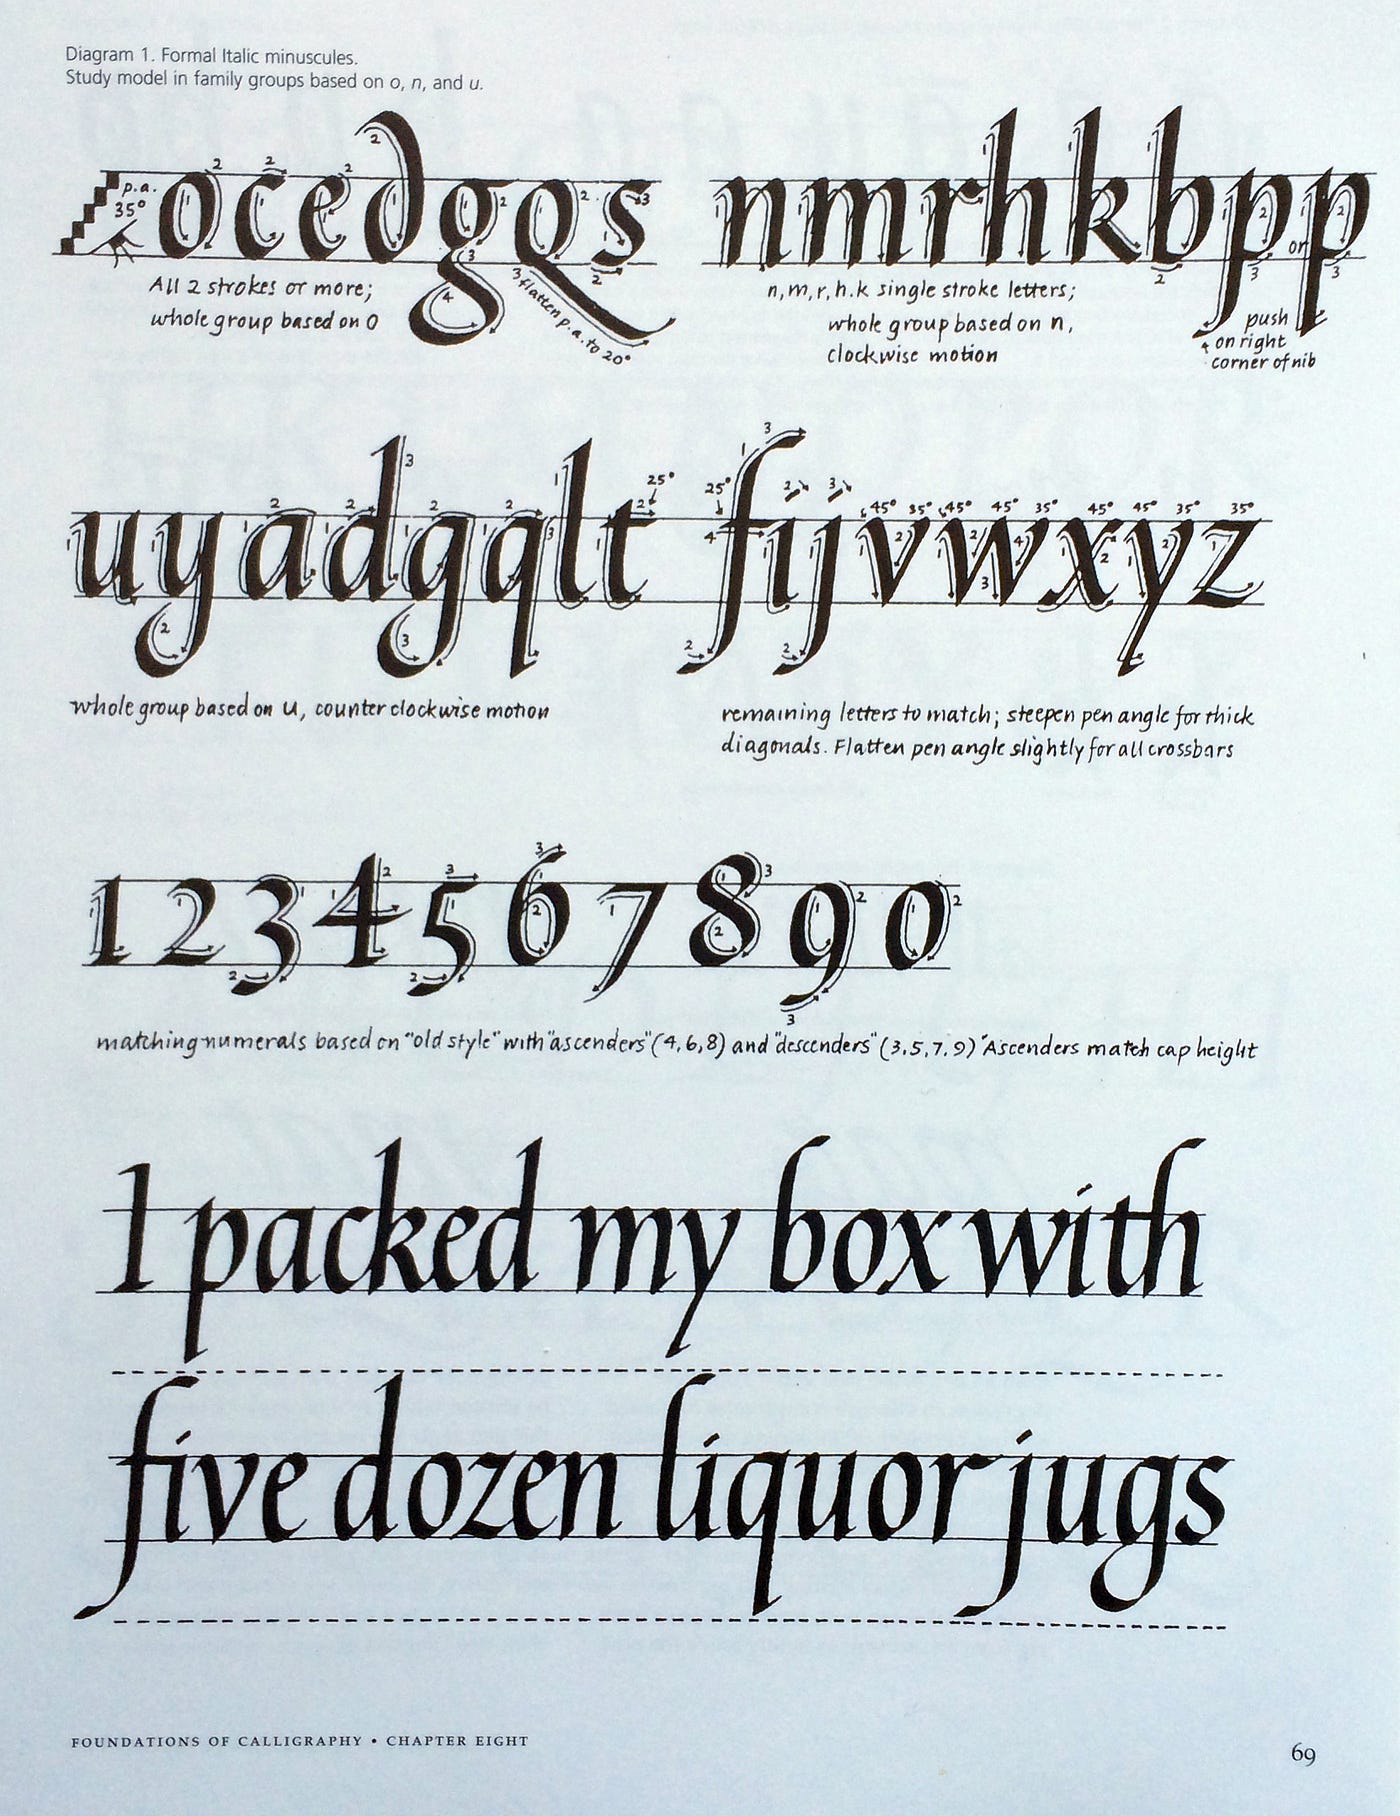 Diagram 1. Formal Italic minuscules.
Study model in family groups based on o, n, and u.
p.a. 35° o c e d g Q s n m r h k b p or p
All 2 strokes or more;
whole group based on o
3 flatten p.a. to 20°
n, m, r, h. k single stroke letters;
whole group based on n,
clockwise motion
push
on right
corner of nib
u y a d g q l t f i j v w x y z
25° 25° 45° 35° 45° 45° 35° 45° 45° 35° 35°
whole group based on u, counter clockwise motion
remaining letters to match; steepen pen angle for thick
diagonals. Flatten pen angle slightly for all crossbars
1 2 3 4 5 6 7 8 9 0
matching numerals based on "old style" with "ascenders" (4, 6, 8) and "descenders" (3, 5, 7, 9) "Ascenders match cap height
I packed my box with
five dozen liquor jugs
FOUNDATIONS OF CALLIGRAPHY • CHAPTER EIGHT
69